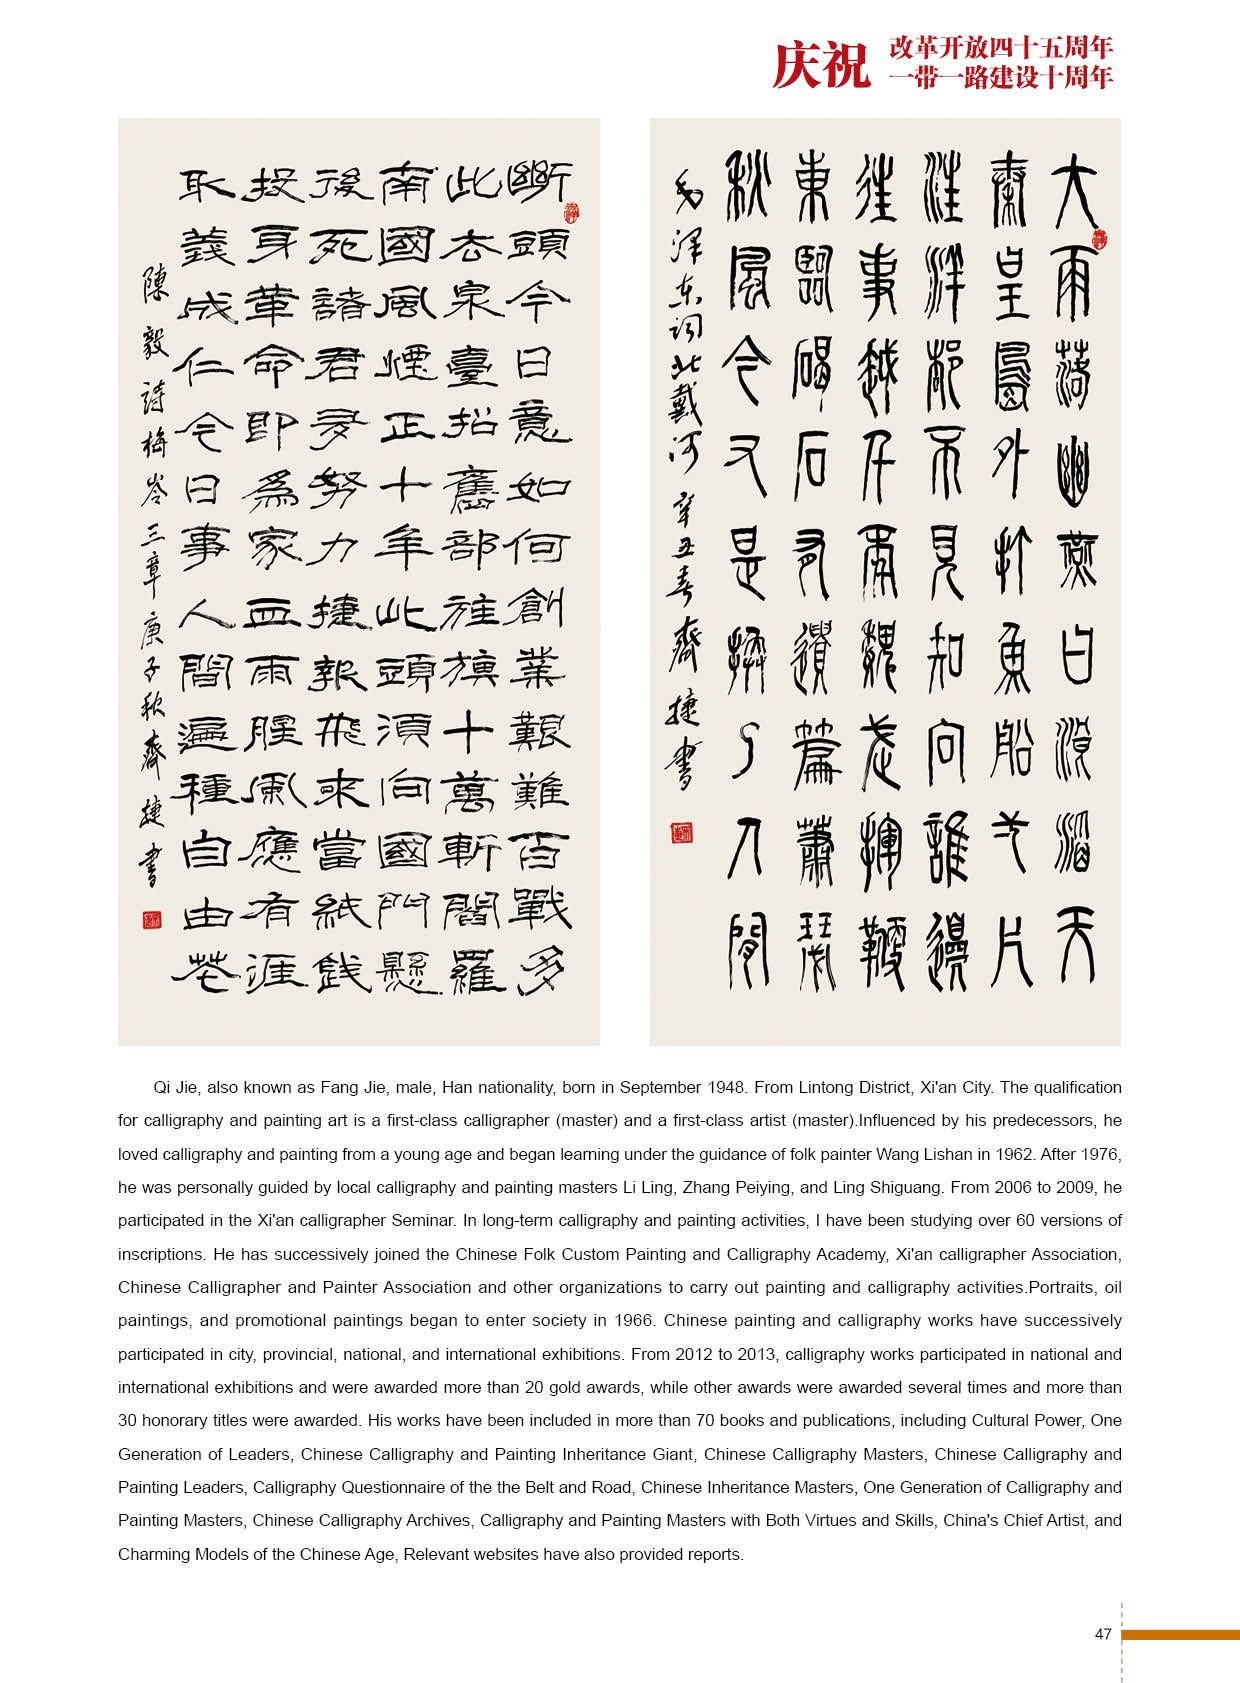 庆祝
改革开放四十五周年
一带一路建设十周年
斷頭今日意如何創業艱難百戰多
此去泉臺招舊部旌旗十萬斬閻羅
南國風煙正十年此頭須向國門懸
後死諸君多努力捷報飛來當紙錢
投身革命即為家血雨腥風應有涯
取義成仁今日事人間遍種自由花
陳毅詩梅岺三章庚子秋齊捷書
大雨落幽燕白浪滔天
秦皇島外打魚船一片
汪洋都不見知向誰邊
往事越千年魏武揮鞭
東臨碣石有遺篇蕭瑟
秋風今又是換了人間
毛澤东词北戴河辛丑春齊捷書
Qi Jie, also known as Fang Jie, male, Han nationality, born in September 1948. From Lintong District, Xi'an City. The qualification
for calligraphy and painting art is a first-class calligrapher (master) and a first-class artist (master).Influenced by his predecessors, he
loved calligraphy and painting from a young age and began learning under the guidance of folk painter Wang Lishan in 1962. After 1976,
he was personally guided by local calligraphy and painting masters Li Ling, Zhang Peiying, and Ling Shiguang. From 2006 to 2009, he
participated in the Xi'an calligrapher Seminar. In long-term calligraphy and painting activities, I have been studying over 60 versions of
inscriptions. He has successively joined the Chinese Folk Custom Painting and Calligraphy Academy, Xi'an calligrapher Association,
Chinese Calligrapher and Painter Association and other organizations to carry out painting and calligraphy activities.Portraits, oil
paintings, and promotional paintings began to enter society in 1966. Chinese painting and calligraphy works have successively
participated in city, provincial, national, and international exhibitions. From 2012 to 2013, calligraphy works participated in national and
international exhibitions and were awarded more than 20 gold awards, while other awards were awarded several times and more than
30 honorary titles were awarded. His works have been included in more than 70 books and publications, including Cultural Power, One
Generation of Leaders, Chinese Calligraphy and Painting Inheritance Giant, Chinese Calligraphy Masters, Chinese Calligraphy and
Painting Leaders, Calligraphy Questionnaire of the the Belt and Road, Chinese Inheritance Masters, One Generation of Calligraphy and
Painting Masters, Chinese Calligraphy Archives, Calligraphy and Painting Masters with Both Virtues and Skills, China's Chief Artist, and
Charming Models of the Chinese Age, Relevant websites have also provided reports.
47